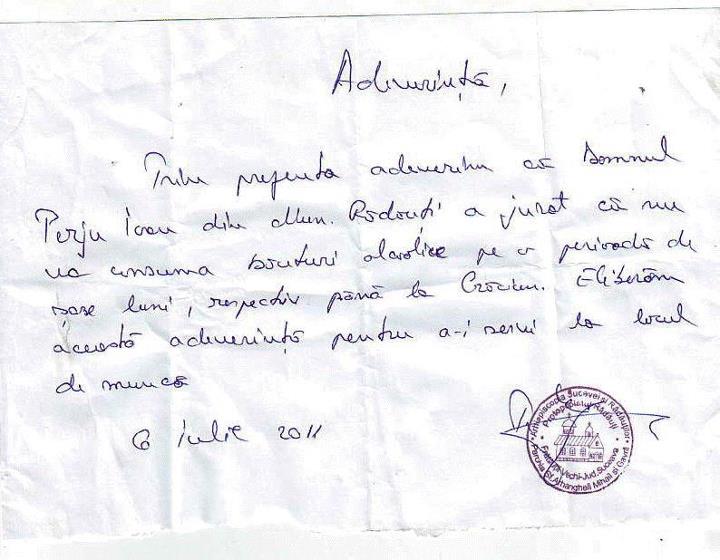 Adeverință,
Prin prezenta adeverim că domnul
Perju Ioan din Mun. Rădăuți a jurat că nu
va consuma băuturi alcolice pe o perioadă de
șase luni, respectiv până la Crăciun. Eliberăm
această adeverință pentru a-i servi la locul
de muncă
6 iulie 2011
Arhiepiscopia Sucevei și Rădăuților
Protopopiatul Rădăuți
Parohia Sf. Arhangheli Mihail și Gavril
Vechi-Jud. Suceava